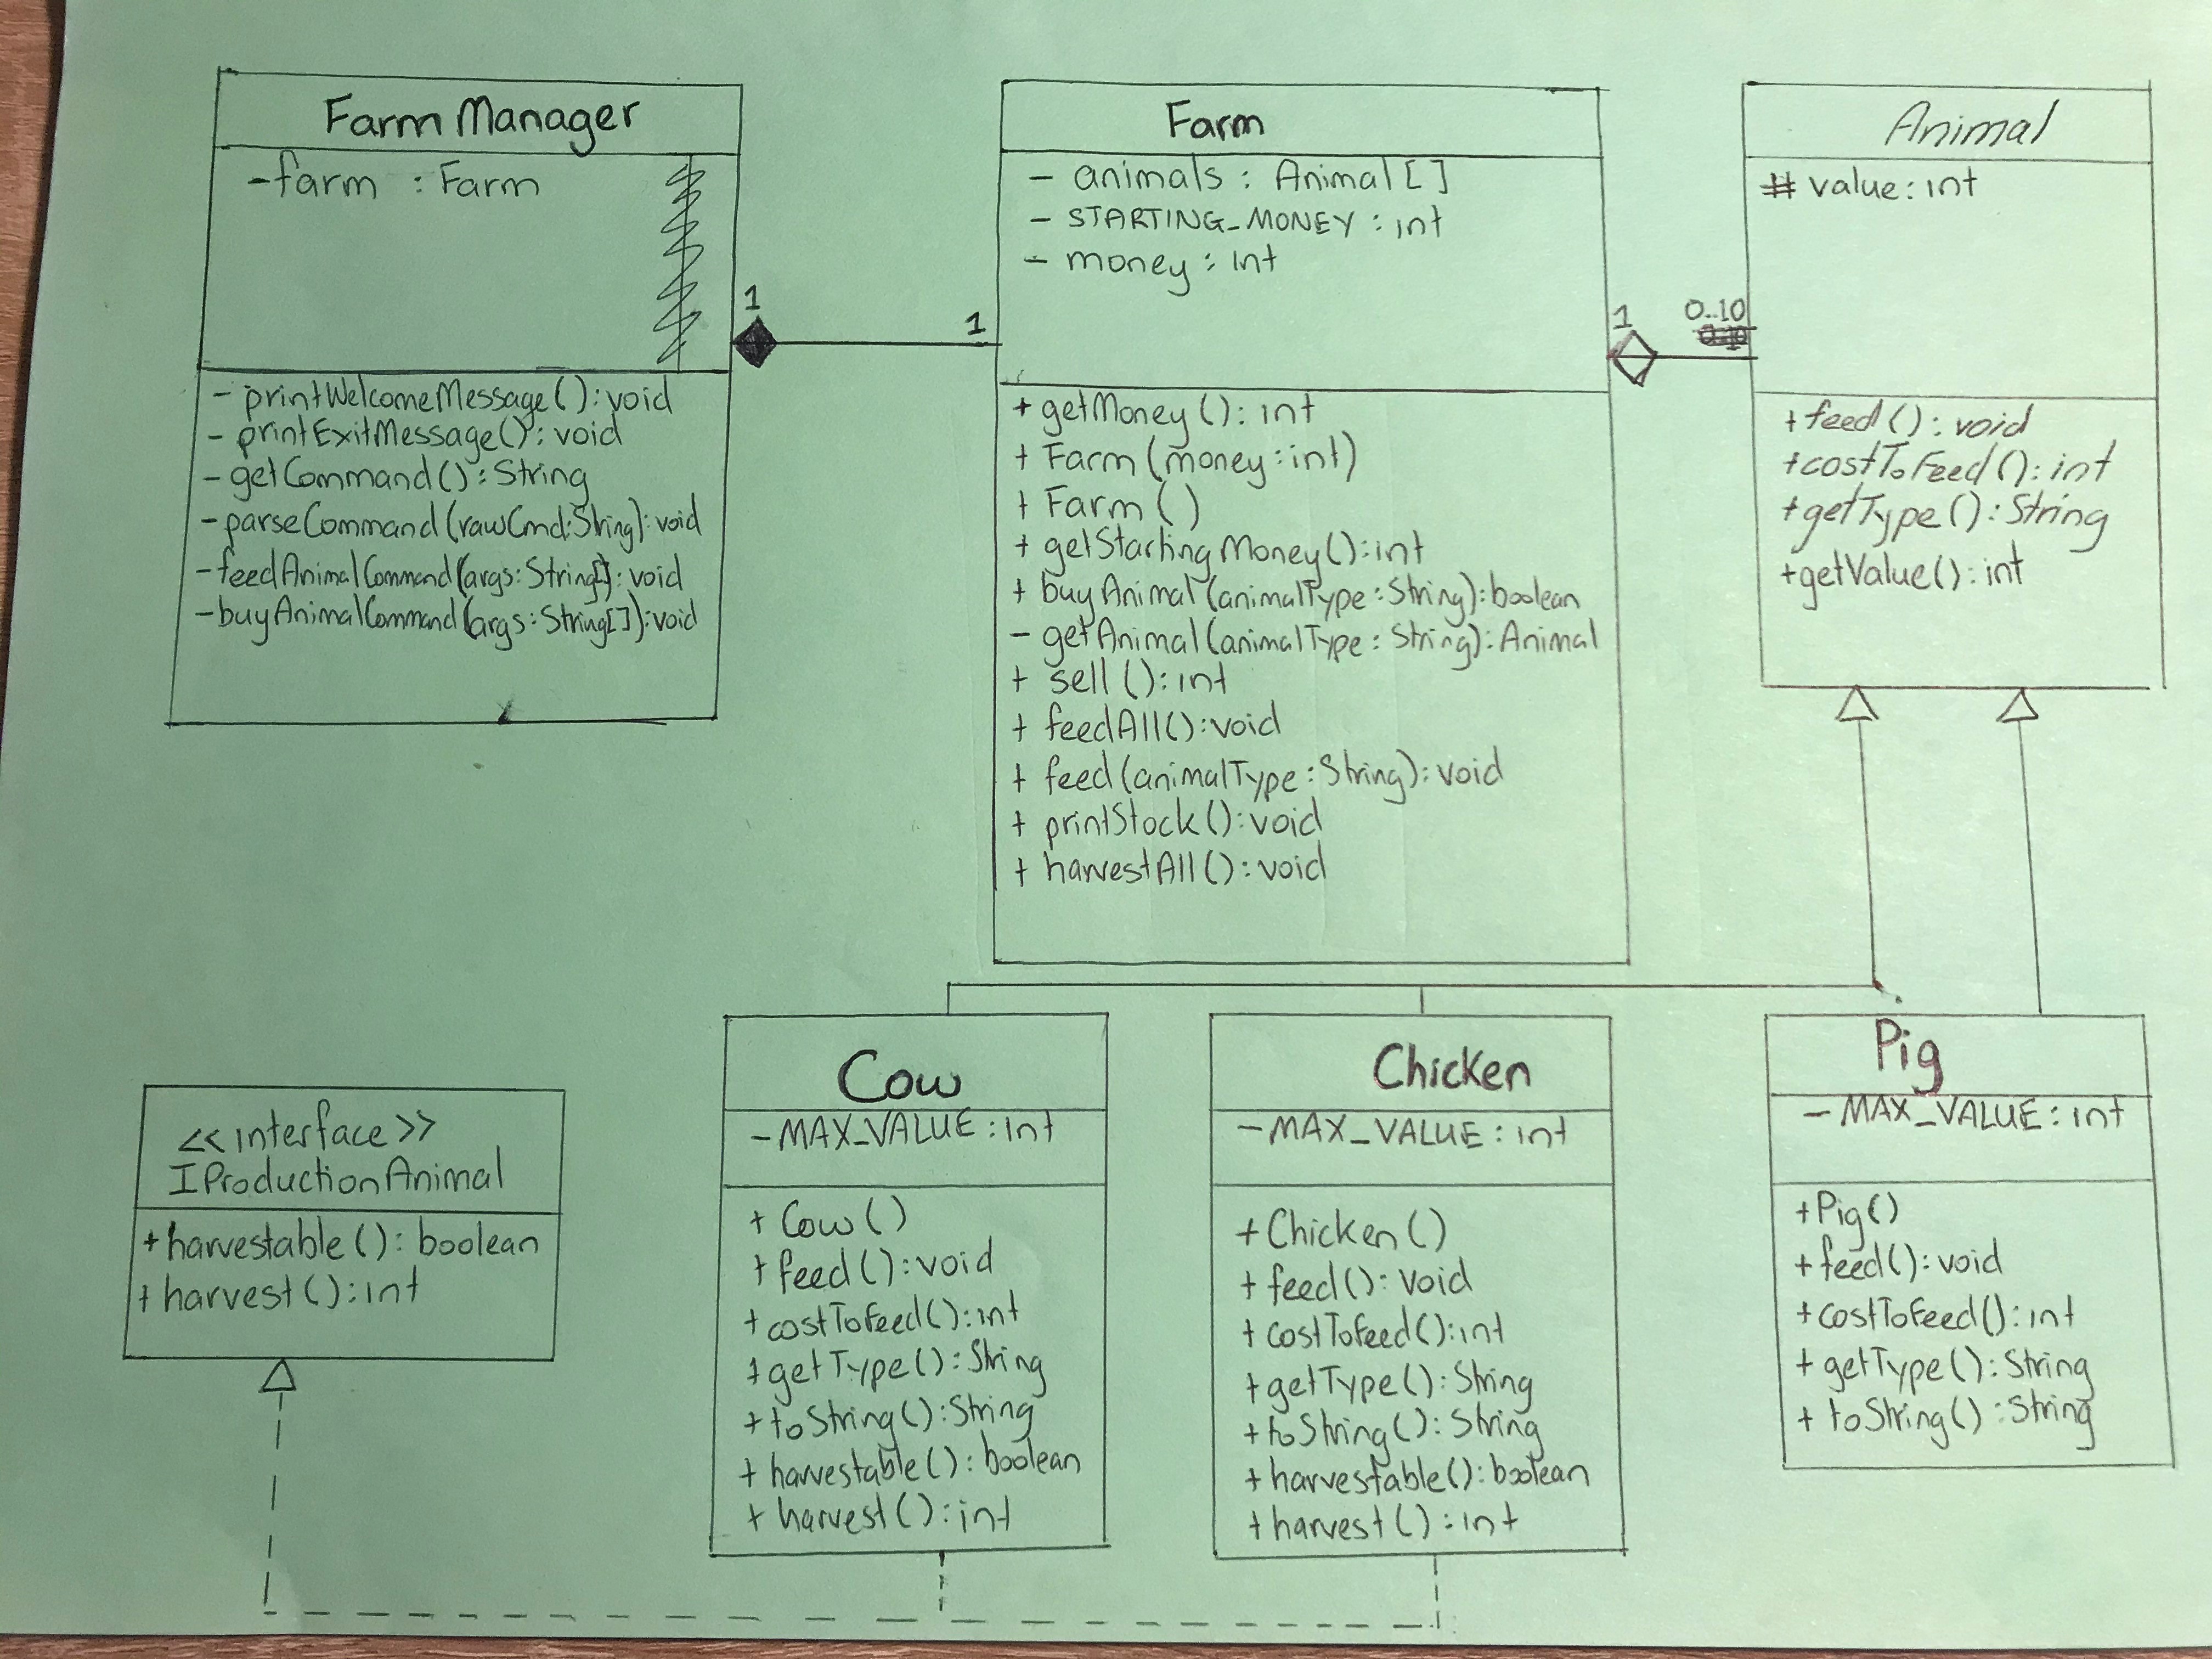 Farm Manager
-farm : Farm
- printWelcomeMessage(): void
- printExitMessage(): void
- getCommand(): String
- parseCommand(rawCmd:String): void
- feedAnimalCommand(args:String[]): void
- buyAnimalCommand(args:String[]): void
1
1
Farm
- animals : Animal[]
- STARTING_MONEY : int
- money : int
+ getMoney(): int
+ Farm(money:int)
+ Farm()
+ getStartingMoney():int
+ buyAnimal(animalType:String):boolean
- getAnimal(animalType:String):Animal
+ sell():int
+ feedAll():void
+ feed(animalType:String):void
+ printStock():void
+ harvestAll():void
1
0..10
Animal
# value:int
+feed():void
+costToFeed():int
+getType():String
+getValue():int
<<interface>>
IProductionAnimal
+harvestable(): boolean
+ harvest():int
Cow
-MAX_VALUE:int
+ Cow()
+ feed():void
+costToFeed():int
+getType():String
+ toString():String
+ harvestable(): boolean
+ harvest():int
Chicken
-MAX_VALUE: int
+Chicken()
+ feed(): void
+ costToFeed():int
+getType():String
+toString():String
+harvestable():boolean
+harvest():int
Pig
- MAX_VALUE: int
+Pig()
+feed():void
+costToFeed():int
+ getType():String
+ toString():String